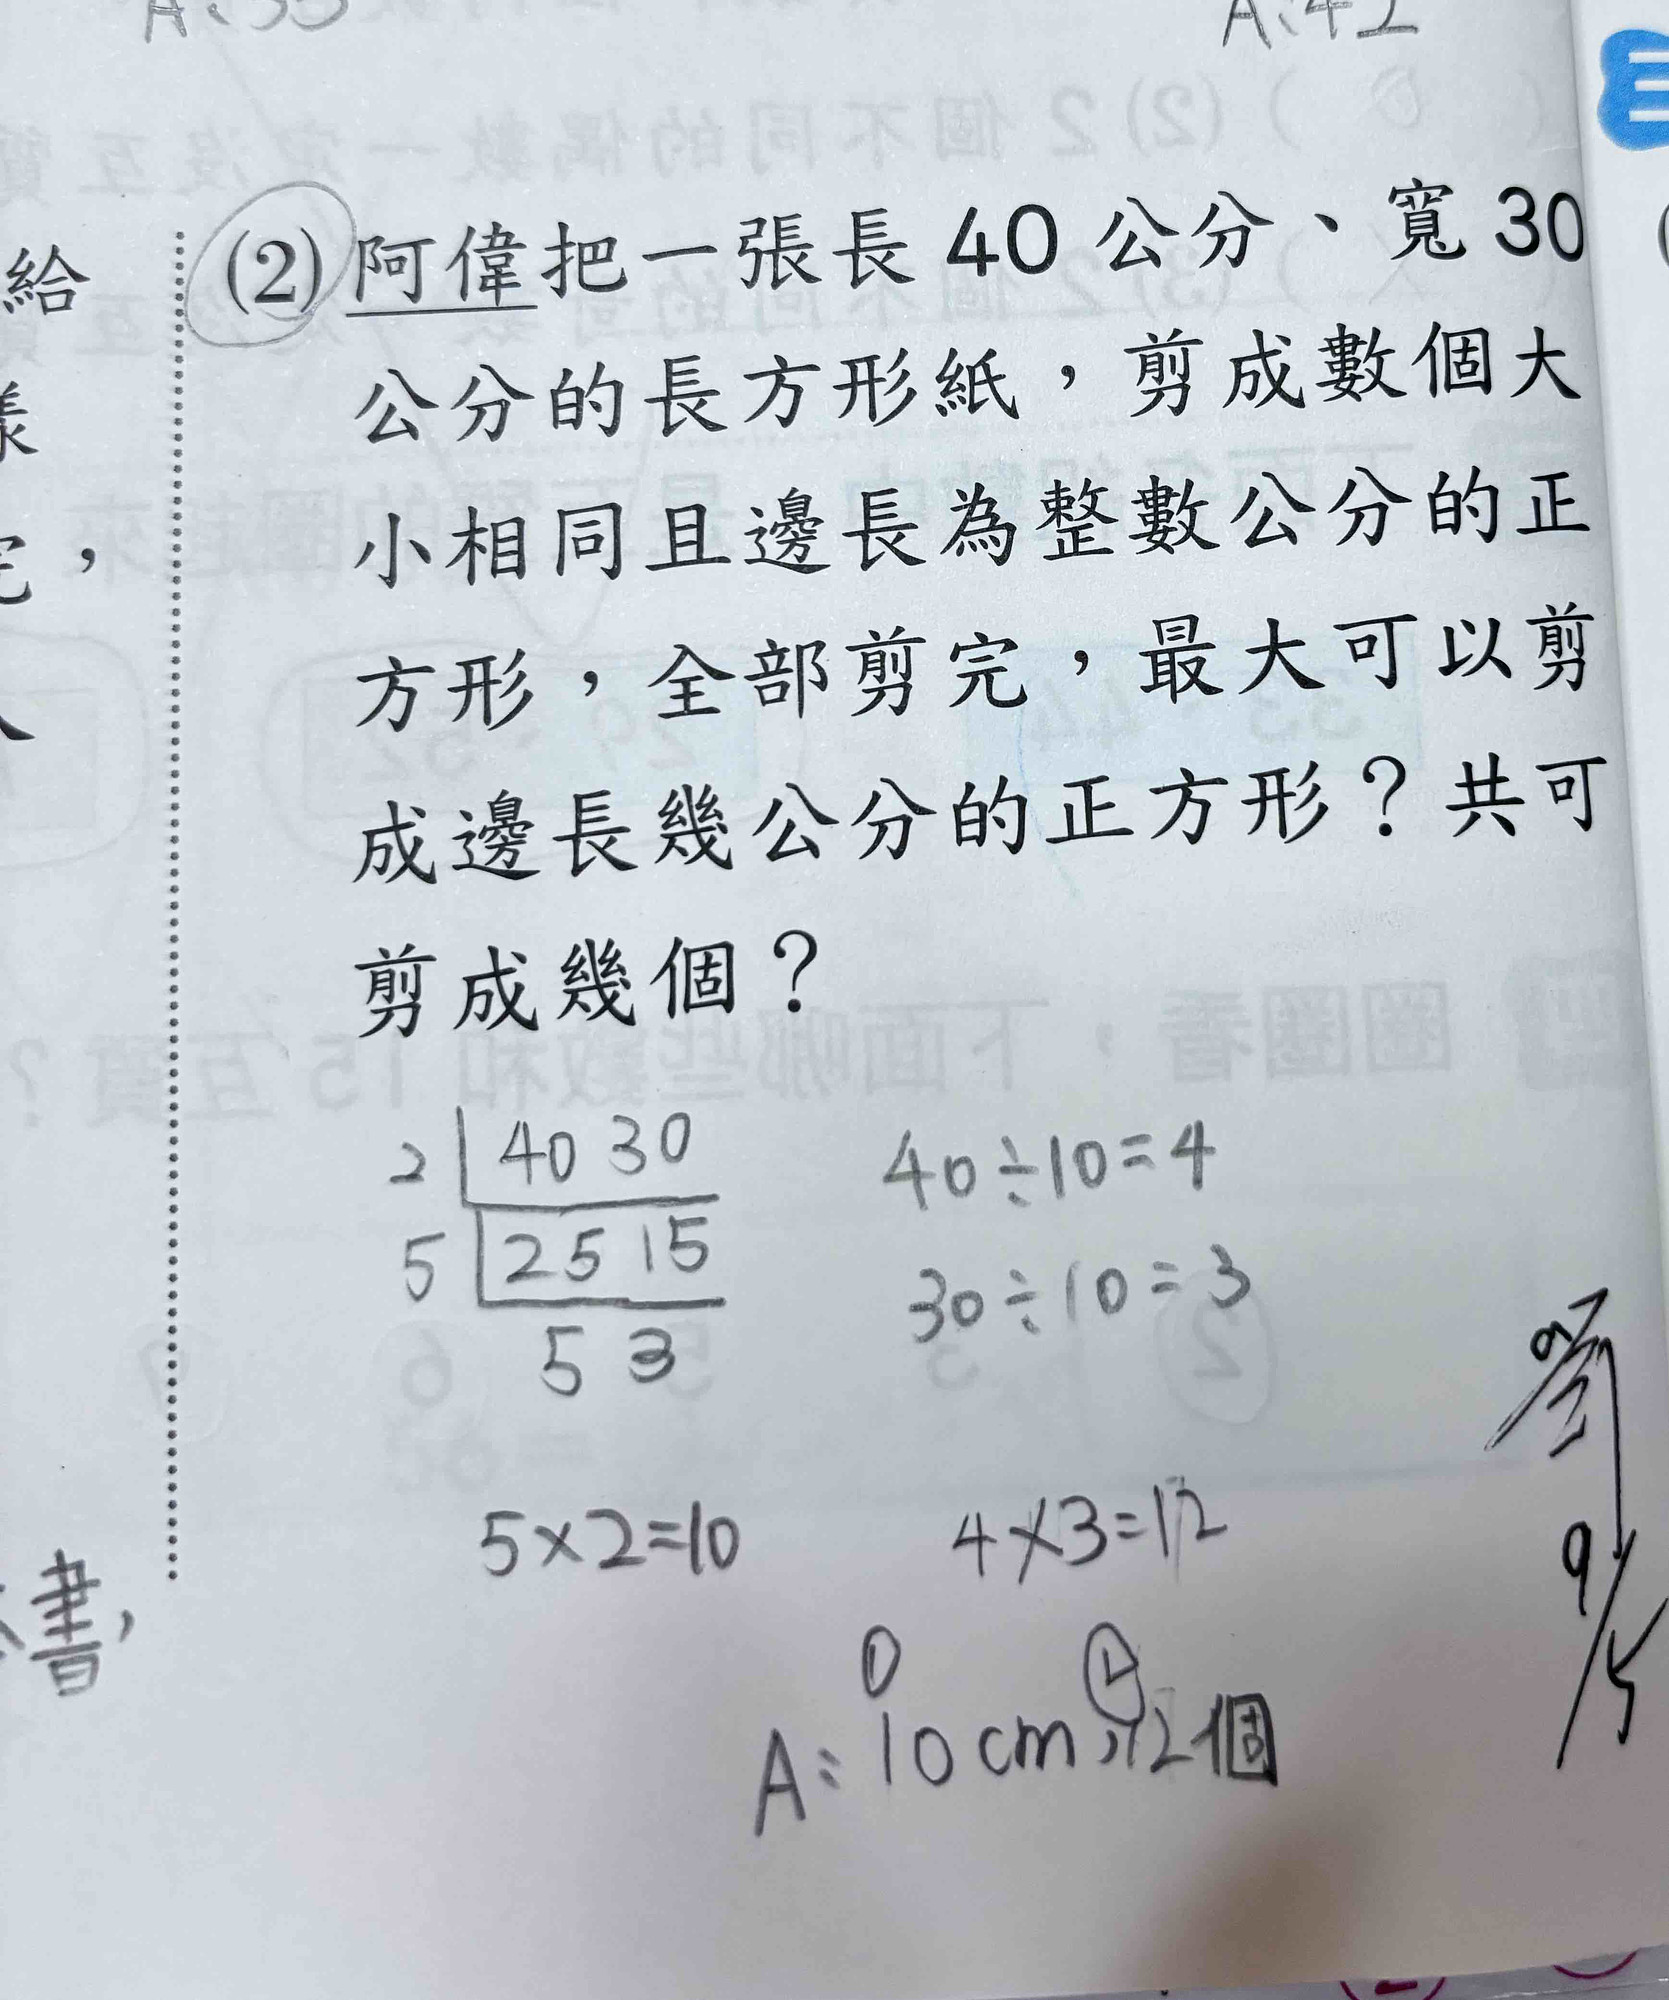 (2)阿偉把一張長40公分、寬30
公分的長方形紙，剪成數個大
小相同且邊長為整數公分的正
方形，全部剪完，最大可以剪
成邊長幾公分的正方形？共可
剪成幾個？
2 40 30
5 25 15
5 3
40÷10=4
30÷10=3
5×2=10
4×3=12
A：10cm，12個
給
樣
完，
書，
劉
9/5